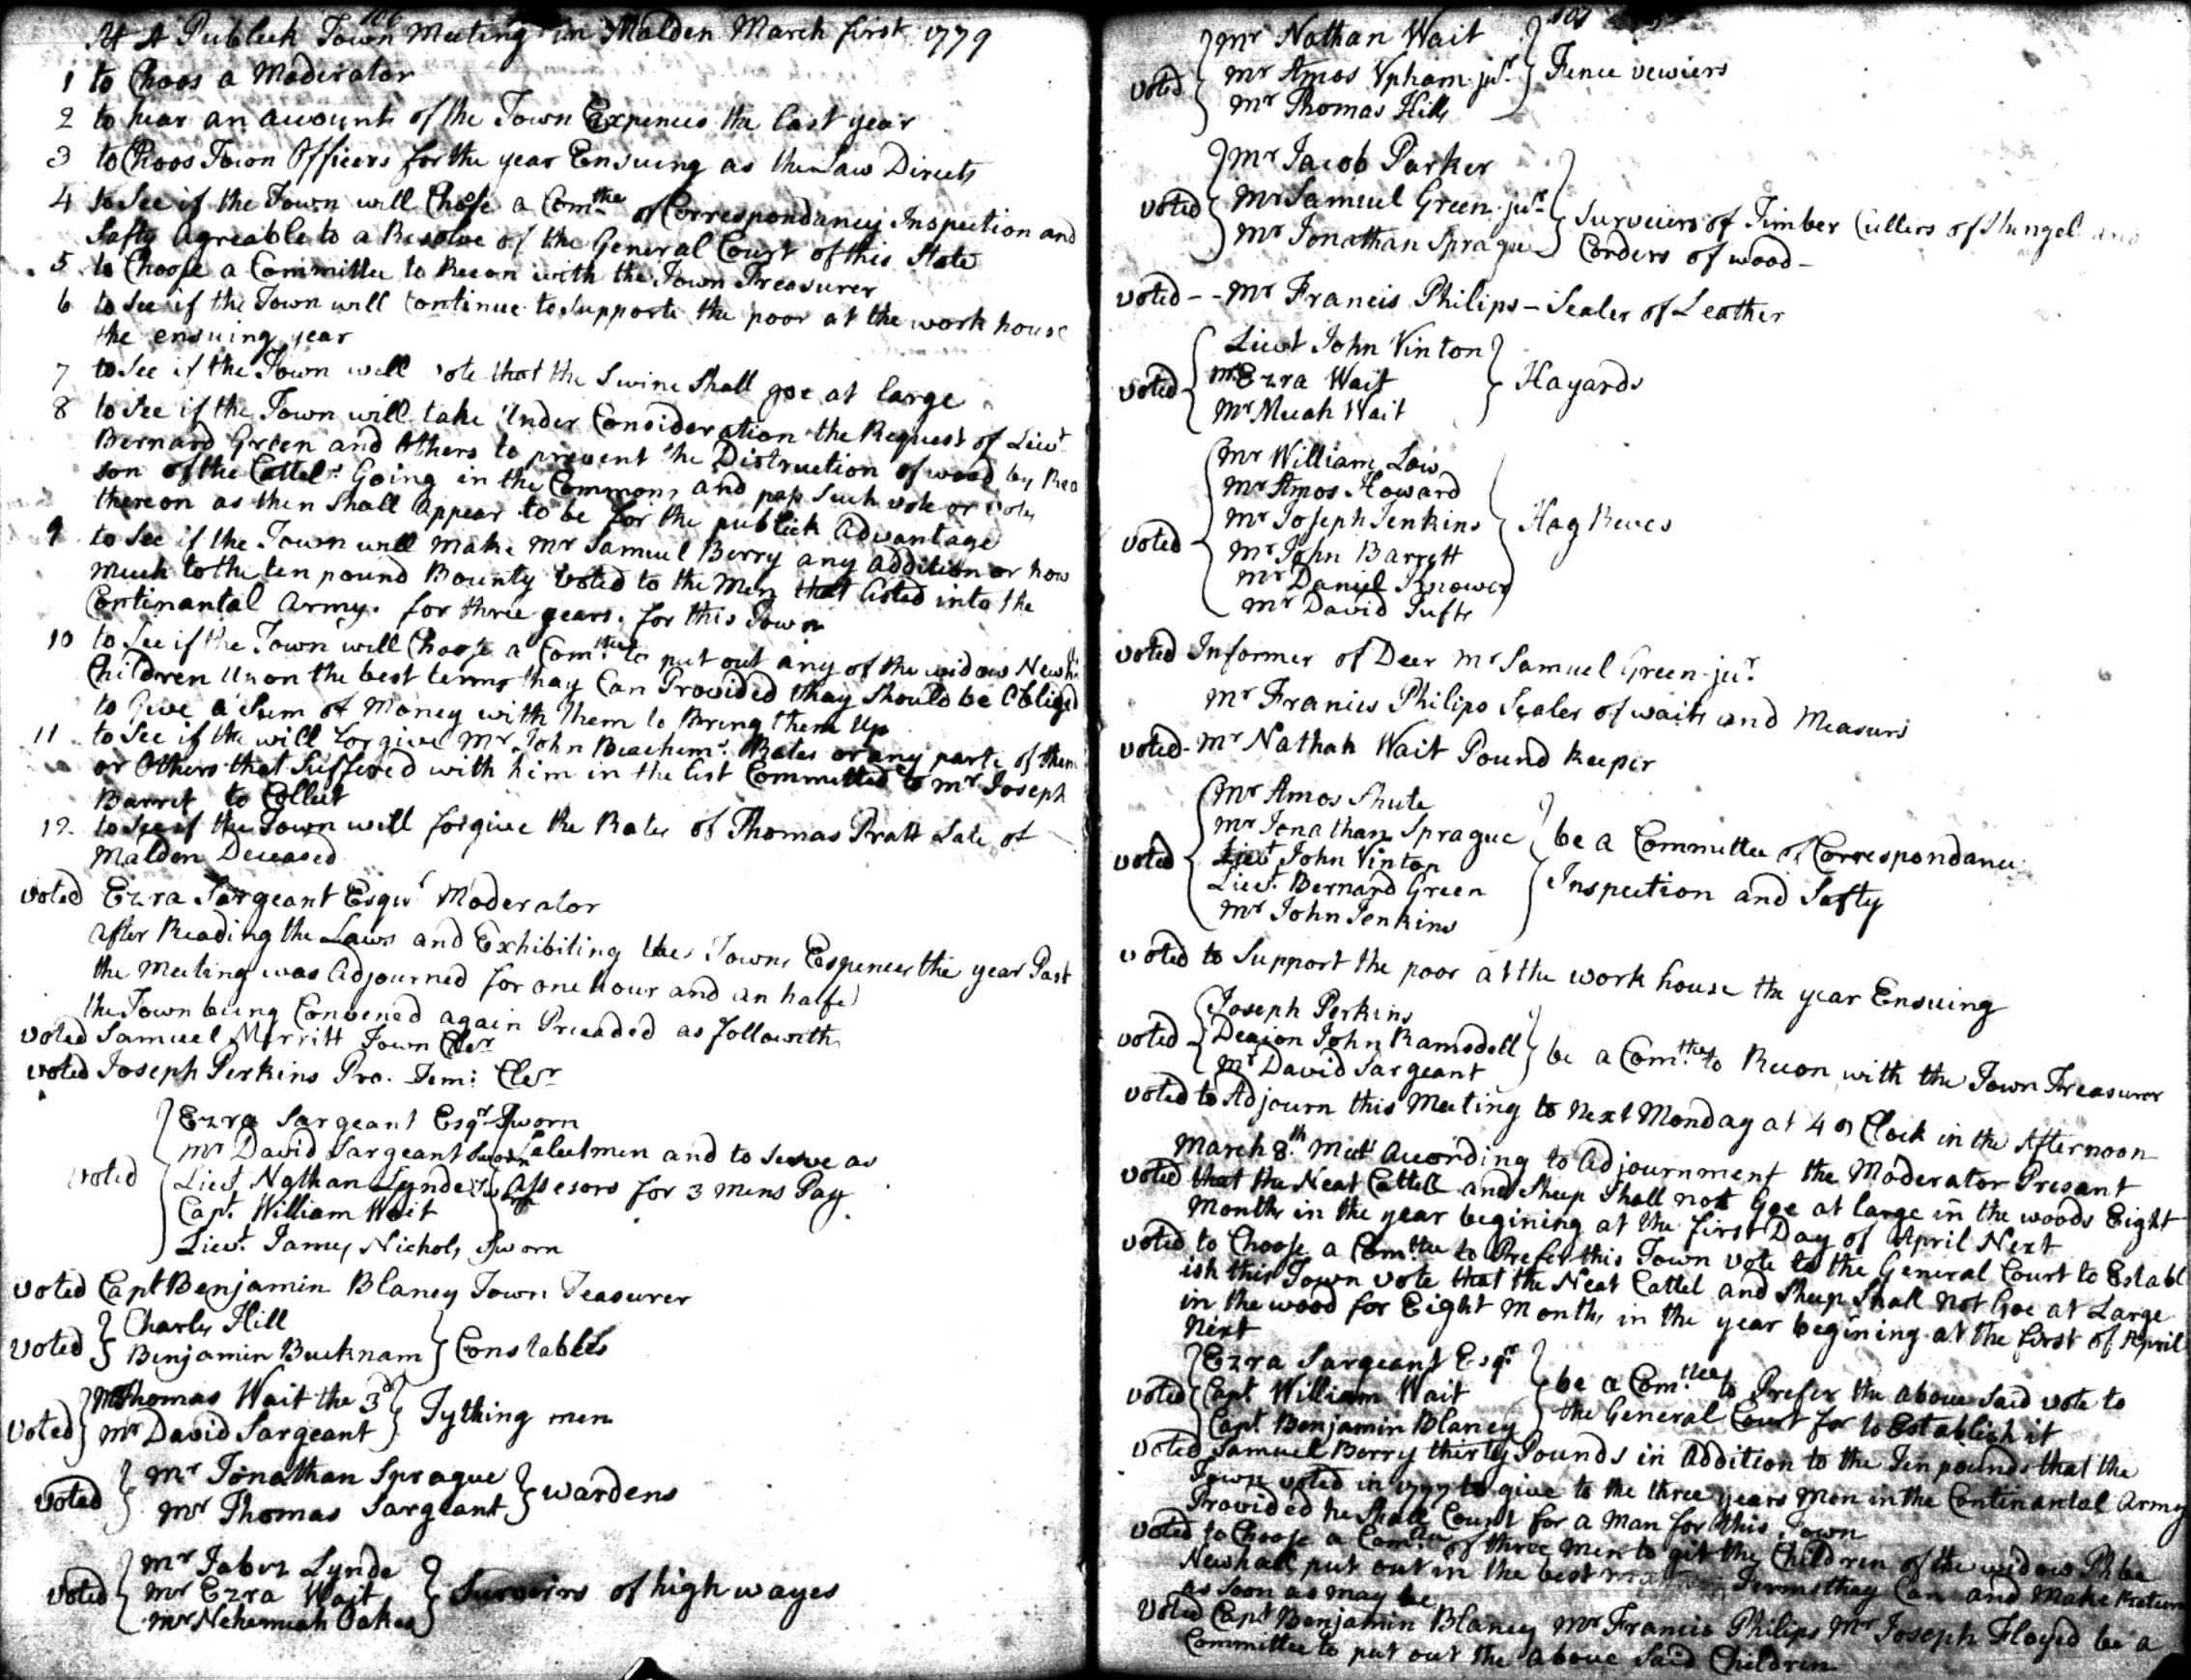 106
At A Publeck Town Meeting in Malden March first 1779
1 to Choos a Moderator
2 to hear an account of the Town Expences the last year
3 to Choos Town Officers for the year Ensuing as the Law Directs
4 to See if the Town will Chose a Com.ttee of Correspondancy Inspection and
Safty Agreable to a Resolve of the General Court of this State
5 to Choose a Committee to Recon with the Town Treasurer
6 to See if the Town will Continue to Supporte the poor at the work house
the ensuing year
7 to See if the Town will vote that the Swine Shall goe at large
8 to See if the Town will take Under Consideration the Request of Lieut
Bernard Green and Others to prevent the Distruction of wood by Rea
son of the Cattels Going in the Common, and pass Such vote or votes
thereon as then Shall appear to be for the publick Advantage
9 to See if the Town will make Mr Samuel Berry any addition or how
much to the ten pound Bounty Voted to the Men that listed into the
Continantal Army. for three years. for this Town
10 to See if the Town will Choose a Com.ttee to put out any of the widow
Children upon the best terms thay Can Provided thay Should be Obliged
to Give a Sum of Money with them to Bring them Up
11 to See if the will forgive Mr John Beachem's Rates or any parte of them
or Others that Suffered with him in the list Committed to Mr Joseph
Barret to Collect
12 to See if the Town will forgive the Rates of Thomas Pratt Late of
Malden Deceased
voted Ezra Sargeant Esqr Moderator
after Reading the Laws and Exhibiting the Towns Expences the year Past
the Meeting was Adjourned for one hour and an halfe
the Town being Convened again Preaded as followith
voted Samuel Merritt Town Cler
voted Joseph Perkins Pro. Tem: Cler
voted
Ezra Sargeant Esqr Sworn
Mr David Sargeant Sworn
Lieut Nathan Lynde
Capt. William Wait
Lieut. James Nichols Sworn
Selectmen and to serve as
Assesors for 3 mens Pay
voted Capt Benjamin Blaney Town Teasurer
voted
Charles Hill
Benjamin Bucknam
Constables
voted
Mr Thomas Wait the 3d
Mr David Sargeant
Tything men
voted
Mr Jonathan Sprague
Mr Thomas Sargeant
wardens
voted
Mr Jabez Lynde
Mr Ezra Wait
Mr Nehemiah Oakes
Surveirs of high wayes
107
voted
Mr Nathan Wait
Mr Amos Upham jur
Mr Thomas Hills
Fence vewiers
voted
Mr Jacob Parker
Mr Samuel Green jur
Mr Jonathan Sprague
Surveiers of Timber Cullers of Shengel and
Corders of wood
voted - - Mr Francis Philips - Sealer of Leather
voted
Lieut John Vinton
Mr Ezra Wait
Mr Micah Wait
Hayards
voted
Mr William Low
Mr Amos Howard
Mr Joseph Jenkins
Mr John Barrett
Mr Daniel Knower
Mr David Tufts
Hag Reves
voted Informer of Deer Mr Samuel Green jur
Mr Francis Philips Sealer of waits and Measurs
voted - Mr Nathan Wait Pound Keeper
voted
Mr Amos Shute
Mr Jonathan Sprague
Lieut John Vinton
Lieut. Bernard Green
Mr John Jenkins
be a Committee of Correspondance
Inspection and Safty
voted to Support the poor at the work house the year Ensuing
voted
Joseph Perkins
Deacon John Ramsdell
Mr David Sargeant
be a Com.ttee to Recon with the Town Treasurer
voted to Adjourn this Meeting to Next Monday at 4 o Clock in the Afternoon
March 8th Mett According to Adjournment the Moderator Presant
voted that the Neat Cattell and Sheep Shall not Goe at large in the woods Eight
Months in the year begining at the first Day of April Next
voted to Choose a Com.ttee to Prefer this Town vote to the General Court to Establ
ish this Town vote that the Neat Cattel and Sheep Shall not Goe at Large
in the wood for Eight Months in the year begining at the first of April
Next
voted
Ezra Sargeant Esqr
Capt. William Wait
Capt Benjamin Blaney
be a Com.ttee to Prefer the above Said vote to
the General Court for to Establish it
voted Samuel Berry thirty Pounds in Addition to the Ten pounds that the
Town voted in 1777 to give to the three years Men in the Continantal Army
Provided he Shall Count for a Man for this Town
voted to Choose a Com.ttee of three men to git the Children of the widow Phbe
Newhall put out in the best Terms thay Can and Make Return
as Soon as may be
Voted Capt Benjamin Blaney Mr Francis Philips Mr Joseph Floyed be a
Committee to put out the above Said Children